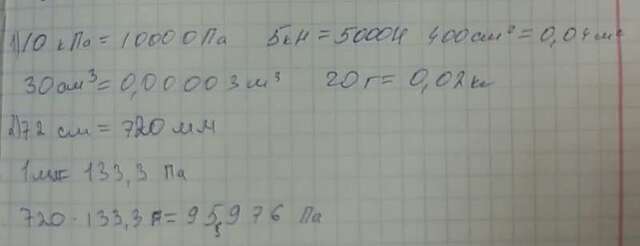 1) 10 кПа = 10000 Па 5 кН = 5000 Н 400 см² = 0,04 м²
30 см³ = 0,00003 м³ 20 г = 0,02 кг
2) 72 см = 720 мм
1 мм = 133,3 Па
720 · 133,3 = 95,976 Па